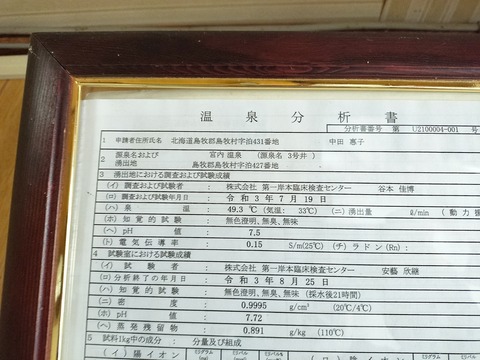 温泉分析書
分析書番号 第 U2100004-001 号
1 申請者住所氏名 北海道島牧郡島牧村字泊431番地 中田 惠子
2 源泉名および 宮内 温泉 (源泉名 3号井)
湧出地 島牧郡島牧村字泊427番地
3 湧出地における調査および試験成績
(イ) 調査および試験者 : 株式会社 第一岸本臨床検査センター 谷本 佳博
(ロ) 調査および試験年月日 : 令和 3年 7月 19日
(ハ) 泉温 : 49.3 ℃ (気温: 33℃) (ニ) 湧出量 ℓ/min (動力揚
(ホ) 知覚的試験 : 無色澄明、無臭、無味
(ヘ) pH値 : 7.5
(ト) 電気伝導率 : 0.15 S/m(25℃) (チ) ラドン(Rn) :
4 試験室における試験成績
(イ) 試験者 : 株式会社 第一岸本臨床検査センター 安藝 欣継
(ロ) 分析終了の年月日 : 令和 3年 8月 25日
(ハ) 知覚的試験 : 無色澄明、無臭、無味 (採水後21時間)
(ニ) 密度 : 0.9995 g/cm³ (20℃/4℃)
(ホ) pH値 : 7.72
(ヘ) 蒸発残留物 : 0.891 g/kg (110℃)
5 試料1kg中の成分・分量及び組成
(イ) 陽イオン ミリグラム ミリバル ミリバル